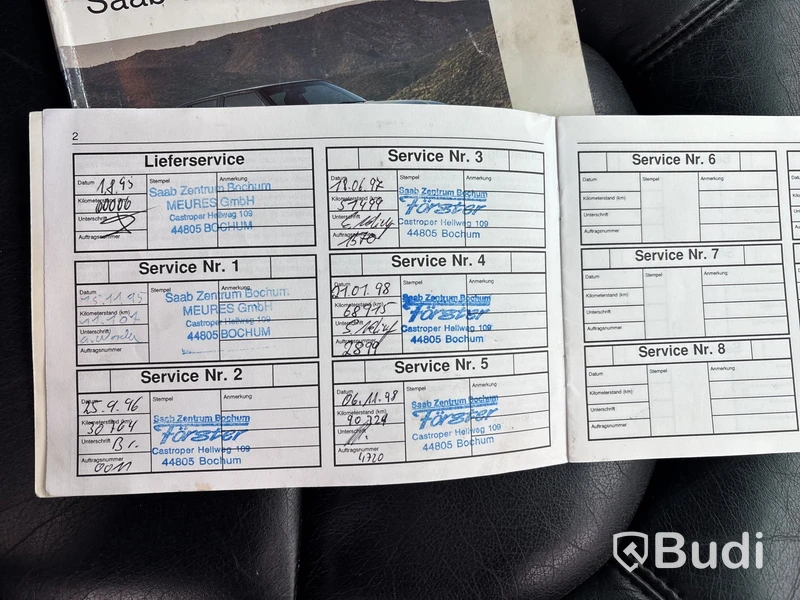 Saab
2
Lieferservice
Datum 1.8.95
Stempel
Anmerkung
Kilometerstand (km) 00006
Unterschrift
Auftragsnummer
Saab Zentrum Bochum
MEURES GmbH
Castroper Hellweg 109
44805 BOCHUM
Service Nr. 1
Datum 15.11.95
Stempel
Anmerkung
Kilometerstand (km) 11.101
Unterschrift
Auftragsnummer
Saab Zentrum Bochum
MEURES GmbH
Castroper Hellweg 109
44805 BOCHUM
Service Nr. 2
Datum 25.9.96
Stempel
Anmerkung
Kilometerstand (km) 30704
Unterschrift Br.
Auftragsnummer 0011
Saab Zentrum Bochum
Förster
Castroper Hellweg 109
44805 Bochum
Service Nr. 3
Datum 18.06.97
Stempel
Anmerkung
Kilometerstand (km)
Unterschrift
Auftragsnummer 1570
Saab Zentrum Bochum
Förster
Castroper Hellweg 109
44805 Bochum
Service Nr. 4
Datum 21.01.98
Stempel
Anmerkung
Kilometerstand (km) 68915
Unterschrift
Auftragsnummer 2899
Saab Zentrum Bochum
Förster
Castroper Hellweg 109
44805 Bochum
Service Nr. 5
Datum 06.11.98
Stempel
Anmerkung
Kilometerstand (km) 90229
Unterschrift
Auftragsnummer 4720
Saab Zentrum Bochum
Förster
Castroper Hellweg 109
44805 Bochum
Service Nr. 6
Datum
Stempel
Anmerkung
Kilometerstand (km)
Unterschrift
Auftragsnummer
Service Nr. 7
Datum
Stempel
Anmerkung
Kilometerstand (km)
Unterschrift
Auftragsnummer
Service Nr. 8
Datum
Stempel
Anmerkung
Kilometerstand (km)
Unterschrift
Auftragsnummer
Budi